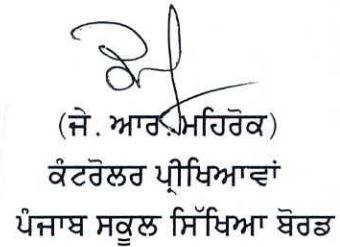 (ਜੇ. ਆਰ. ਮਹਿਰੋਕ)
ਕੰਟਰੋਲਰ ਪ੍ਰੀਖਿਆਵਾਂ
ਪੰਜਾਬ ਸਕੂਲ ਸਿੱਖਿਆ ਬੋਰਡ